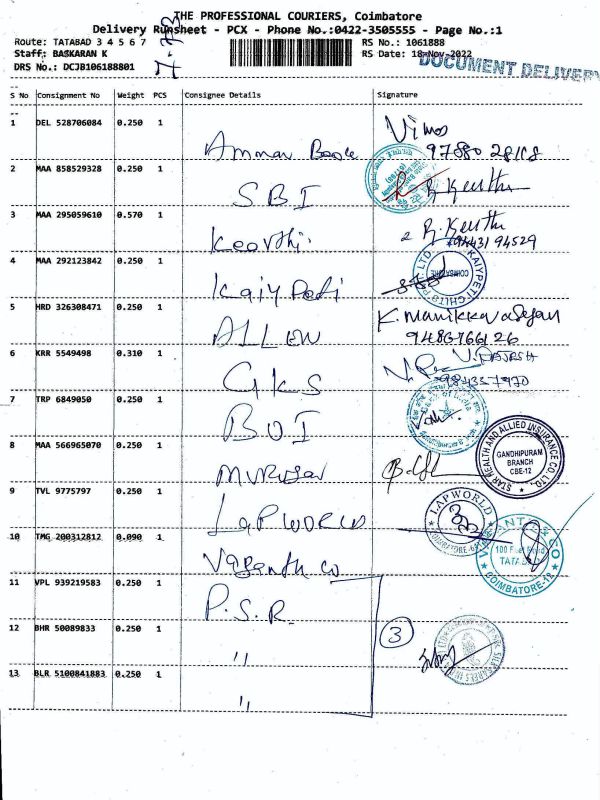 THE PROFESSIONAL COURIERS, Coimbatore
Delivery Runsheet - PCX - Phone No.:0422-3505555 - Page No.:1
Route: TATABAD 3 4 5 6 7
RS No.: 1061888
Staff: BASKARAN K
RS Date: 18-Nov-2022
DRS No.: DCJB106188801
DOCUMENT DELIVERY
S No Consignment No Weight PCS Consignee Details Signature
1 DEL 528706084 0.250 1
Vimos
97880 28108
2 MAA 858529328 0.250 1
SBI
R. Keerthi
3 MAA 295059610 0.570 1
Keerthi
R. Keerthi
94431 94529
4 MAA 292123842 0.250 1
KAIYPETI CHITS P LTD
COIMBATORE
5 HRD 326308471 0.250 1
ALLEN
K. Manikkavasagan
9486766126
6 KRR 5549498 0.310 1
GKS
V. RAJESH
7 TRP 6849050 0.250 1
BOI
8 MAA 566965070 0.250 1
Murugan
STAR HEALTH AND ALLIED INSURANCE CO.LTD.
GANDHIPURAM
BRANCH
CBE-12
9 TVL 9775797 0.250 1
LAPWORLD
LAPWORLD
COIMBATORE
10 TMG 200312812 0.090 1
Vasanth co
100 Feet Road
TATABAD
COIMBATORE-12
11 VPL 939219583 0.250 1
P.S.R.
12 BHR 50089833 0.250 1
"
3
13 BLR 5100841883 0.250 1
"